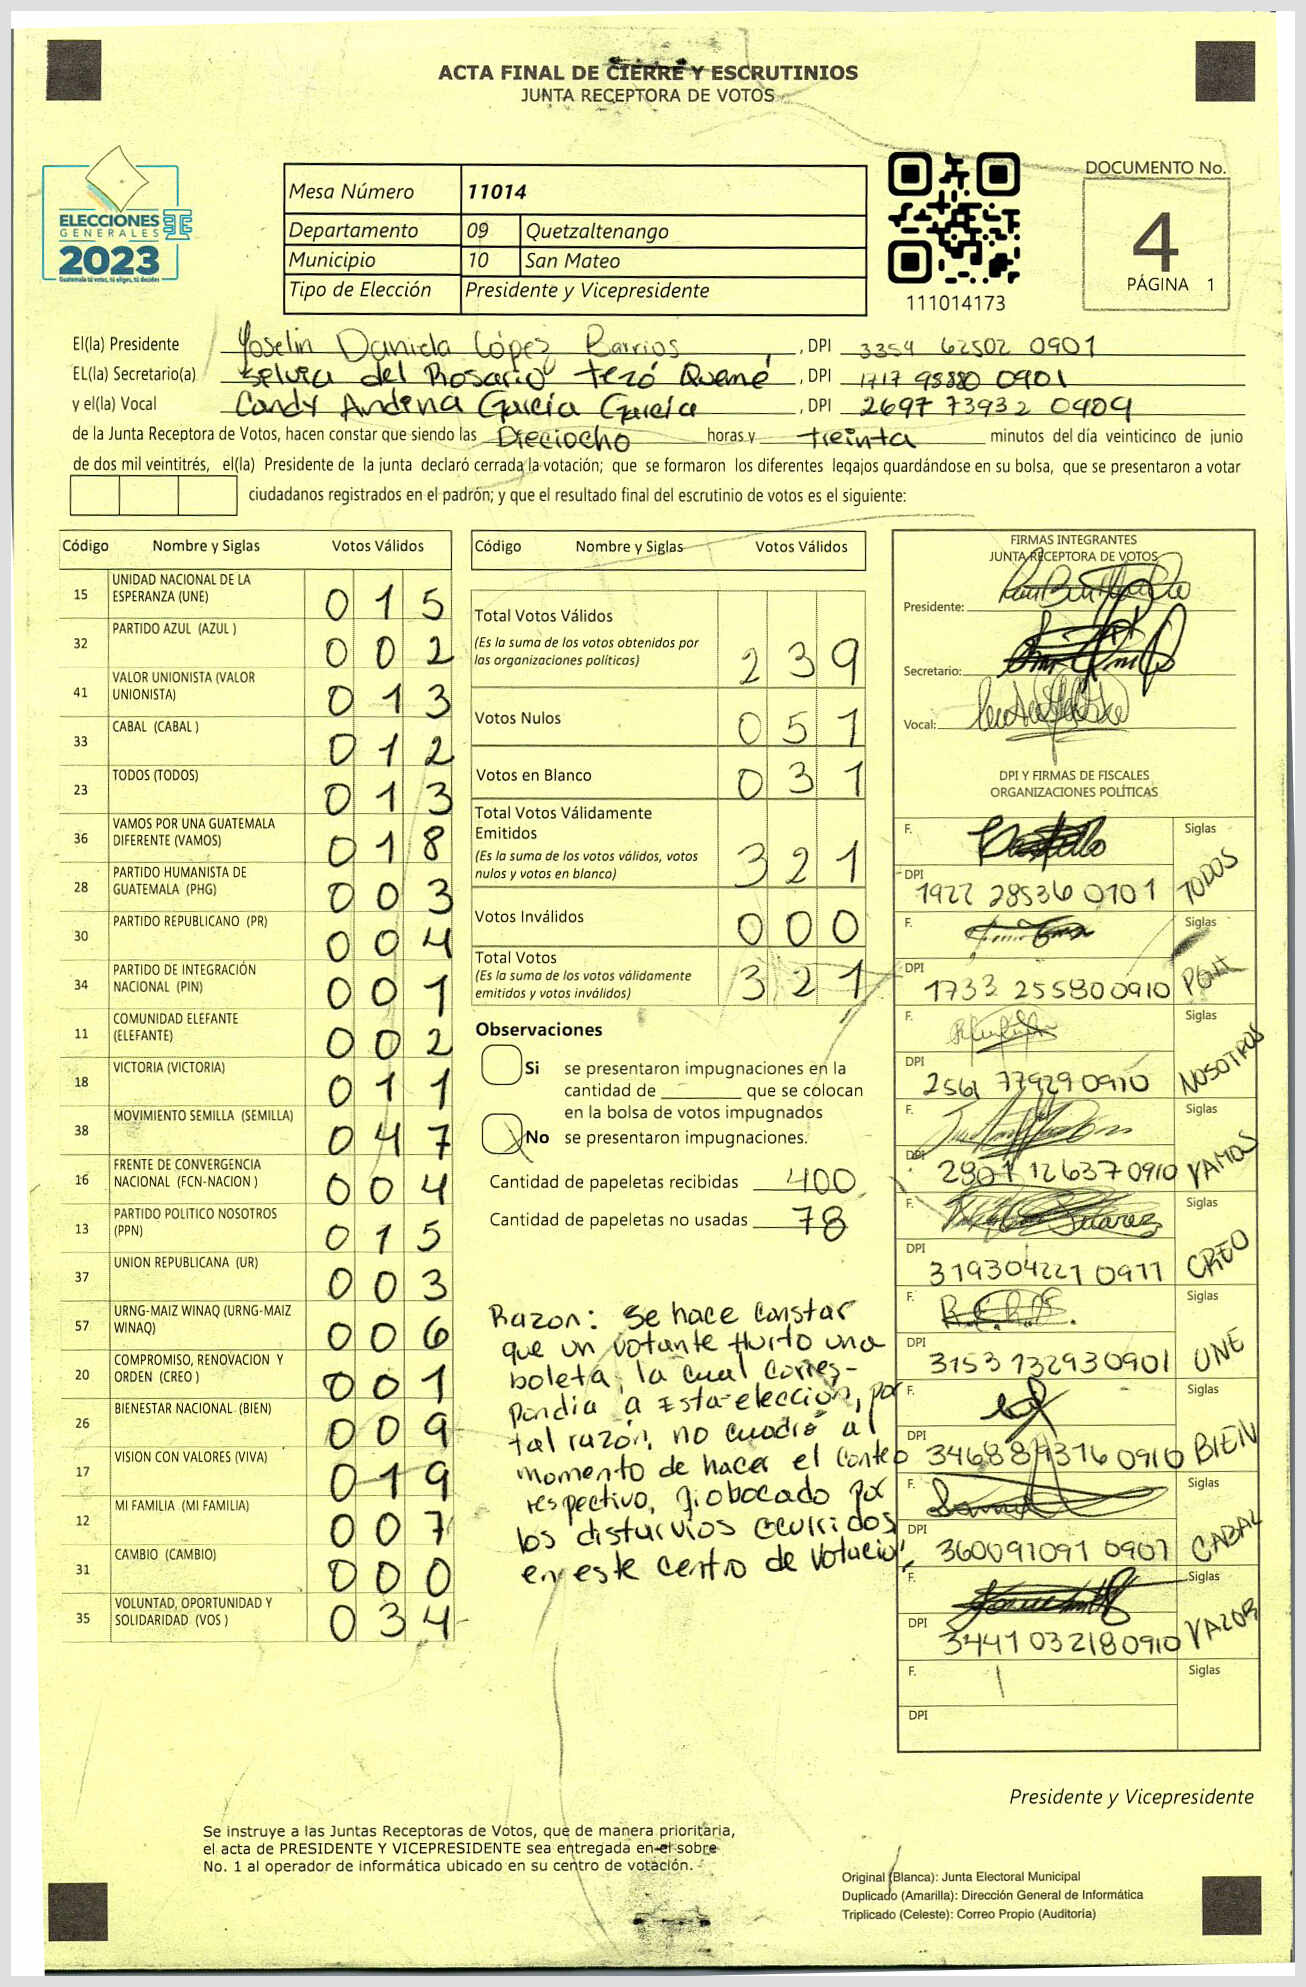 ACTA FINAL DE CIERRE Y ESCRUTINIOS
JUNTA RECEPTORA DE VOTOS
ELECCIONES
GENERALES
2023
Guatemala tú votas, tú eliges, tú decides
Mesa Número 11014
Departamento 09 Quetzaltenango
Municipio 10 San Mateo
Tipo de Elección Presidente y Vicepresidente
111014173
DOCUMENTO No.
4
PÁGINA 1
El(la) Presidente Yoselin Daniela López Barrios, DPI 3354 62502 0901
EL(la) Secretario(a) Selvia del Rosario Tezó Quemé, DPI 1717 98880 0901
y el(la) Vocal Candy Andina García García, DPI 2697 73932 0909
de la Junta Receptora de Votos, hacen constar que siendo las Dieciocho horas y treinta minutos del día veinticinco de junio
de dos mil veintitrés, el(la) Presidente de la junta declaró cerrada la votación; que se formaron los diferentes legajos guardándose en su bolsa, que se presentaron a votar
ciudadanos registrados en el padrón; y que el resultado final del escrutinio de votos es el siguiente:
Código Nombre y Siglas Votos Válidos
15 UNIDAD NACIONAL DE LA ESPERANZA (UNE) 0 1 5
32 PARTIDO AZUL (AZUL ) 0 0 2
41 VALOR UNIONISTA (VALOR UNIONISTA) 0 1 3
33 CABAL (CABAL ) 0 1 2
23 TODOS (TODOS) 0 1 3
36 VAMOS POR UNA GUATEMALA DIFERENTE (VAMOS) 0 1 8
28 PARTIDO HUMANISTA DE GUATEMALA (PHG) 0 0 3
30 PARTIDO REPUBLICANO (PR) 0 0 4
34 PARTIDO DE INTEGRACIÓN NACIONAL (PIN) 0 0 1
11 COMUNIDAD ELEFANTE (ELEFANTE) 0 0 2
18 VICTORIA (VICTORIA) 0 1 1
38 MOVIMIENTO SEMILLA (SEMILLA) 0 4 7
16 FRENTE DE CONVERGENCIA NACIONAL (FCN-NACION ) 0 0 4
13 PARTIDO POLITICO NOSOTROS (PPN) 0 1 5
37 UNION REPUBLICANA (UR) 0 0 3
57 URNG-MAIZ WINAQ (URNG-MAIZ WINAQ) 0 0 6
20 COMPROMISO, RENOVACION Y ORDEN (CREO ) 0 0 1
26 BIENESTAR NACIONAL (BIEN) 0 0 9
17 VISION CON VALORES (VIVA) 0 1 9
12 MI FAMILIA (MI FAMILIA) 0 0 7
31 CAMBIO (CAMBIO) 0 0 0
35 VOLUNTAD, OPORTUNIDAD Y SOLIDARIDAD (VOS ) 0 3 4
Código Nombre y Siglas Votos Válidos
Total Votos Válidos
(Es la suma de los votos obtenidos por
las organizaciones políticas) 2 3 9
Votos Nulos 0 5 1
Votos en Blanco 0 3 1
Total Votos Válidamente
Emitidos
(Es la suma de los votos válidos, votos
nulos y votos en blanco) 3 2 1
Votos Inválidos 0 0 0
Total Votos
(Es la suma de los votos válidamente
emitidos y votos inválidos) 3 2 1
Observaciones
Si se presentaron impugnaciones en la
cantidad de ________ que se colocan
en la bolsa de votos impugnados
No se presentaron impugnaciones.
Cantidad de papeletas recibidas 400
Cantidad de papeletas no usadas 78
Razon: Se hace constar
que un votante Hurto una
boleta, la cual corres-
pondia a Esta eleccion, por
tal razón, no cuadró al
momento de hacer el conteo
respectivo, probocado por
los disturvios ocurridos
en este centro de votacio
FIRMAS INTEGRANTES
JUNTA RECEPTORA DE VOTOS
Presidente:
Secretario:
Vocal:
DPI Y FIRMAS DE FISCALES
ORGANIZACIONES POLÍTICAS
F. Siglas
DPI 1922 28536 0101 TODOS
F. Siglas
DPI 1733 25580 0910
F. Siglas
DPI 2561 77929 0910 NOSOTROS
F. Siglas
DPI 2801 12637 0910 VAMOS
F. Suarez Siglas
DPI 319304221 0911 CREO
F. Siglas
DPI 3153 13293 0901 UNE
F. Siglas
DPI 34688 9316 0910 BIEN
F. Siglas
DPI 360091091 0901 CABAL
F. Siglas
DPI 3441 03218 0910 VALOR
F. Siglas
DPI
Presidente y Vicepresidente
Se instruye a las Juntas Receptoras de Votos, que de manera prioritaria,
el acta de PRESIDENTE Y VICEPRESIDENTE sea entregada en el sobre
No. 1 al operador de informática ubicado en su centro de votación.
Original (Blanca): Junta Electoral Municipal
Duplicado (Amarilla): Dirección General de Informática
Triplicado (Celeste): Correo Propio (Auditoría)